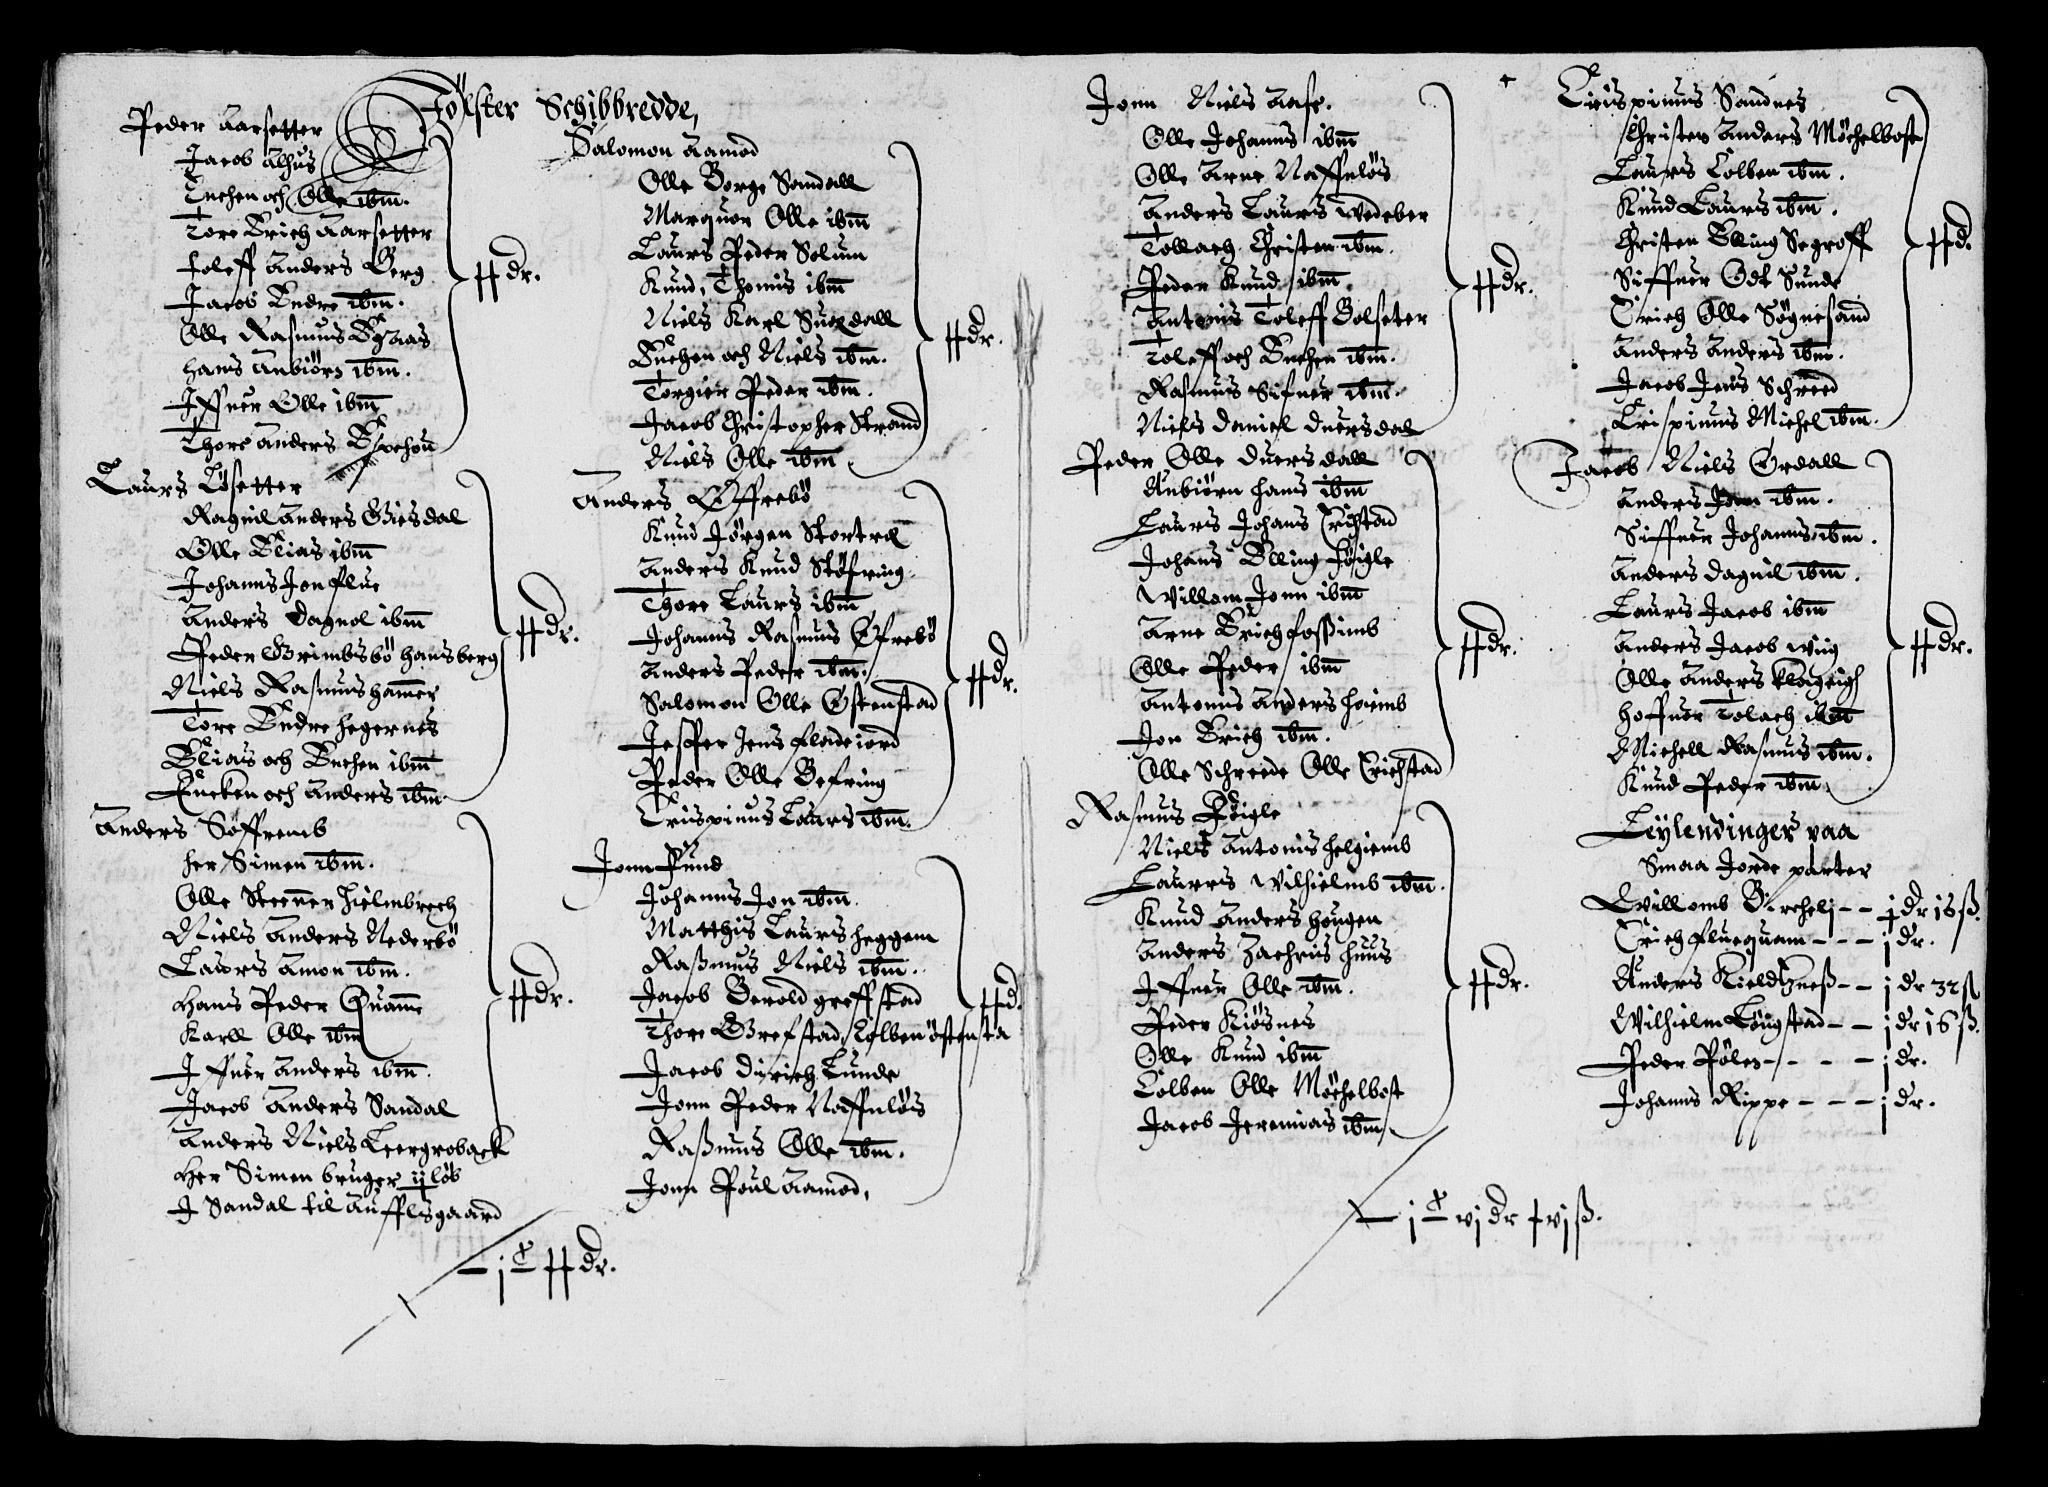 Jölster Schibbredde,
Peder Aarsetter
Jacob Alhus
Enchen och Olle ibm.
Tore Erich Aarsetter
Toleff Anders Berg
Jacob Endre ibm.
Olle Rasmus
Hans Anbiörn ibm.
Iffuer Olle ibm
Thore Anders
xx dr.
Laurs Lösetter
Ragnil Anders Giesdal
Olle Elias ibm
Johans Jon Flue
Anders Dagnol ibm
Peder Grimbsbö Hansberg
Niels Rasmus Hamer
Tore Endre Hegernes
Elias och Enchen ibm
Encken och Anders ibm
xx dr.
Anders Söffremb
Her Simen ibm.
Olle Steener Hielmbrech
Niels Anders Nederbö
Laurs Amon ibm.
Hans Peder Quame
Karll Olle ibm
Iffuer Anders ibm.
Jacob Anders Sandal
Anders Niels Leergroback
Her Simen bruger ij löb
J Sandal til Aufflsgaard
xx dr.
Salomon Aamod
Olle Borge Sandall
Marquor Olle ibm
Laurs Peder Solum
Knud, Thomis ibm
Niels Karl
Enchen och Niels ibm.
Torgier Peder ibm.
Jacob Christopher Strand
Niels Olle ibm
xx dr.
Anders Öffrebö
Knud Jörgen
Anders Knud Stöfring
Thore Laurs ibm
Johans Rasmus Öfrebö
Anders Peder ibm.
Salomon Olle Östenstad
Jesffer Jens Fladeiord
Peder Olle Befring
Crispinus Laurs ibm.
xx dr.
Jonn Fund
Johans Jon ibm.
Matthis Laurs Heggem
Rasmus Niels ibm.
Jacob Berold Greffstad
Thore Grefstad, Colben Östensta
Jacob Dirich Lunde
Jonn Peder Naffnlös
Rasmus Olle ibm.
Jonn Poul Aamod,
xx d.
— j C xx dr.
Jonn Niels Aase.
Olle Johans ibm
Olle Arne Naffnlös
Anders Laurs Wedeber
Tollach Christen ibm.
Peder Knud ibm.
Antonis Toleff Bolseter
Toleff och Enchen ibm.
Rasmus Sifuer ibm.
Niels Daniel Duersdal
xx dr.
Peder Olle Duersdall
Anbiörn Hans ibm
Laurs Johans Erichstad
Johans Elling Höigle
Willom Jonn ibm
Arne Erich Fossimb
Olle Peder ibm
Antonius Anders Hoeimb
Jon Erich ibm.
Olle Schreede Olle Erichstad
xx dr.
Rasmus Höigle
Niels Antonis Helgiemb
Laurrs Wilhielmb ibm.
Knud Anders Hougen
Anders Zachrius Huus
Iffuer Olle ibm.
Peder Kiösnes
Olle Knud ibm
Colben Olle Möchelbost
Jacob Jeremias ibm
xx dr.
Crispinus Sandnes
Christen Anders Möchelbost
Laurs Colben ibm.
Knud Laurs ibm.
Christen Elling Segroff
Siffuer Odt Sunde
Erich Olle Sögnesand
Anders Anders ibm.
Jacob Jens Schreed
Crispinus Michel ibm.
xx d.
Jacob Niels Ordall
Anders Jon ibm.
Siffuer Johannis ibm.
Anders Dagnil ibm.
Laurs Jacob ibm
Anders Jacob Wiig
Olle Anders Klageigh
Hoffuor Tolach ibm
Michell Rasmus ibm.
Knud Peder ibm.
xx dr.
Leylendinger paa
Smaa Jorde parter
Willomb — — j dr 16 ß.
Erich Fluequam — — — j dr.
Anders Kieldtzneß — — j dr 32 ß
Wilhielm Löugstad — — j dr 16 ß.
Peder — — — j dr.
Johans Rippe — — — j dr.
— j C vj dr xvj ß.